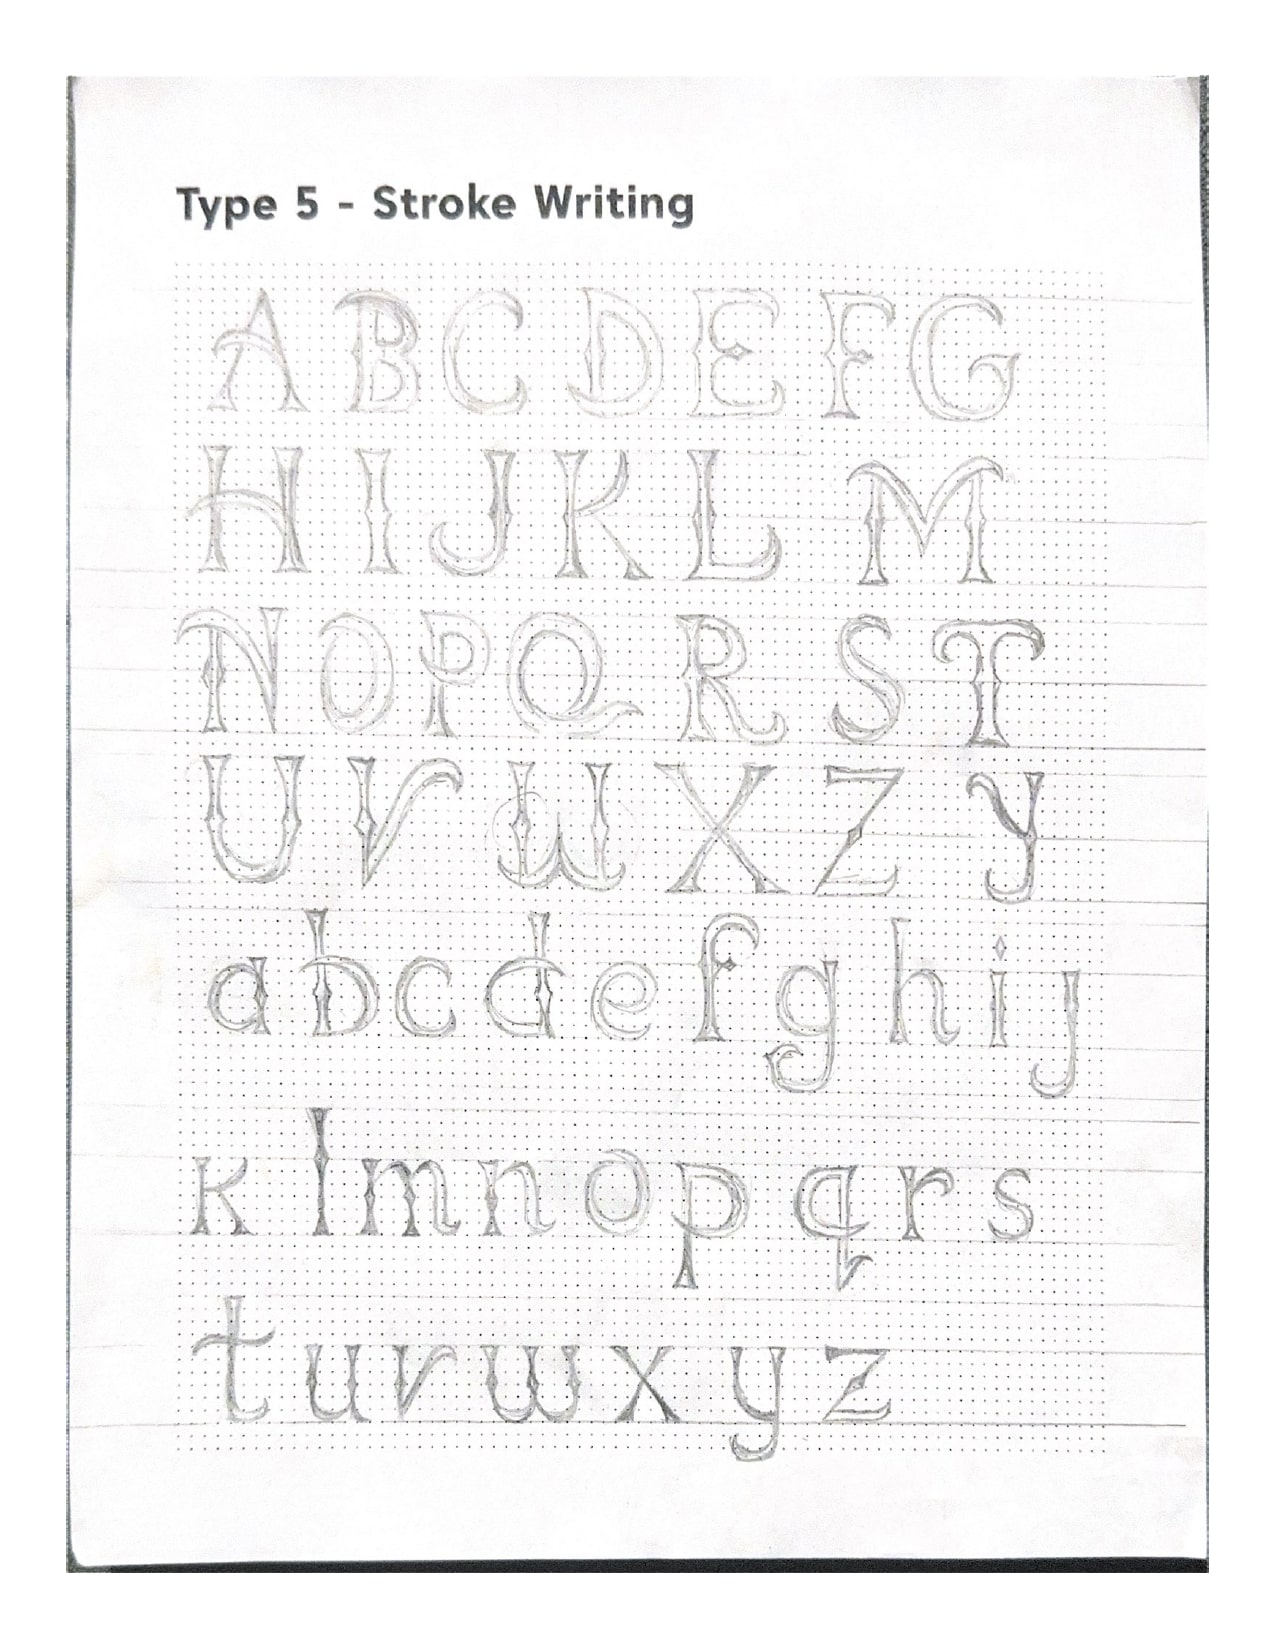 Type 5 - Stroke Writing
A B C D E F G
H I J K L M
N O P Q R S T
U V W X Z Y
a b c d e f g h i j
k l m n o p q r s
t u v w x y z